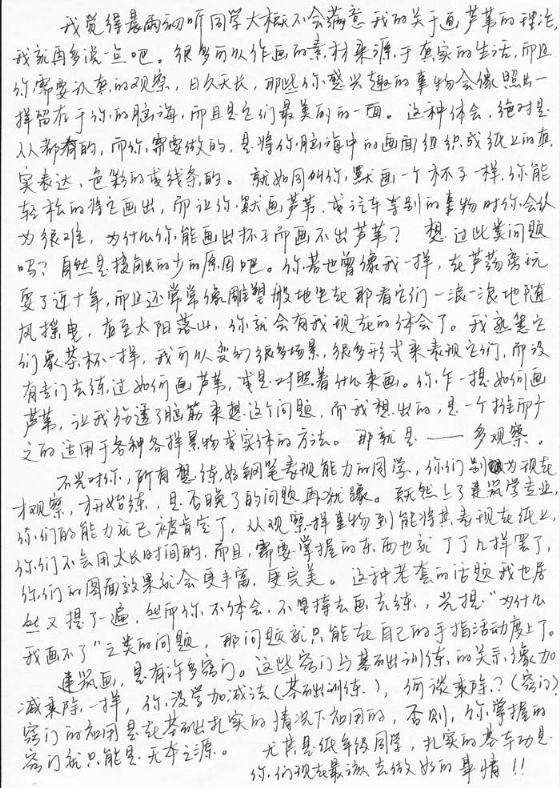 我觉得最两细听同学大概不会满意我的关于画芦苇的理论,
我就再多说一点吧。很多可以作画的素材来源于真实的生活,而且
你需要认真的观察,日久天长,那些你感兴趣的事物会像照片一
样留存于你的脑海,而且是它们最美的一面。这种体会,绝对是
人人都有的,而你需要做的,是将你脑海中的画面组织成纸上的真
实表达,色彩的或线条的。就如同叫你默画一个杯子一样,你能
轻松的将它画出,而让你默画芦苇、或汽车等别的事物时你会认
为很难,为什么你能画出杯子而画不出芦苇?想过此类问题
吗?自然是接触的少的原因吧。你若也曾像我一样,在芦荡旁玩
耍了近十年,而且还常常像雕塑般地坐在那看它们一浪一浪地随
风摇曳,直至太阳落山,你就会有我现在的体会了。我熟悉它
们象茶杯一样,我可以变幻很多场景,很多形式来表现它们,而没
有专门去练过如何画芦苇,或是对照着什么来画。你乍一提如何画
芦苇,让我伤透了脑筋来想这个问题,而我想出的,是一个推而广
之的适用于各种各样景物或实体的方法。那就是——多观察。
不光对你,所有想练好钢笔表现能力的同学,你们别为现在
才观察,才开始练,是否晚了的问题再犹豫。既然上了建筑学专业,
你们的能力就已被肯定了,从观察一样事物到能将其表现在纸上,
你们不会用太长时间的,而且,需要掌握的东西也就了了几样罢了,
你们的图面效果就会更丰富,更完美。这种老套的话题我也居
然又提了一遍,然而你不体会,不坚持去画去练,光想“为什么
我画不了”之类的问题,那问题就只能在自己的手指活动度上了。
建筑画,是有许多窍门。这些窍门与基础训练的关系,像加
减乘除一样,你没学加减法(基础训练),何谈乘除?(窍门)
窍门的祖用是在基础扎实的情况下祖用的,否则,你掌握的
窍门就只能是无本之源。尤其是低年级同学,扎实的基本功是
你们现在最该去做好的事情!!